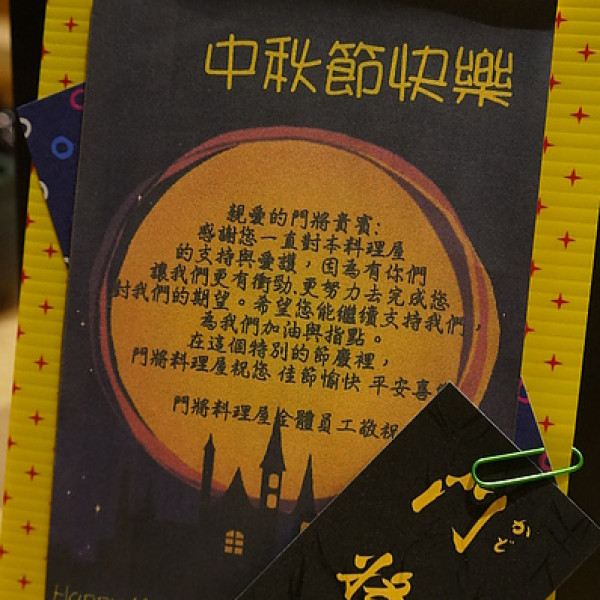 中秋節快樂
親愛的門將貴賓:
感謝您一直對本料理屋
的支持與愛護，因為有你們
讓我們更有衝勁.更努力去完成您
對我們的期望。希望您能繼續支持我們，
為我們加油與指點。
在這個特別的節慶裡，
門將料理屋祝您 佳節愉快 平安喜
門將料理屋全體員工敬祝
Happy
かど